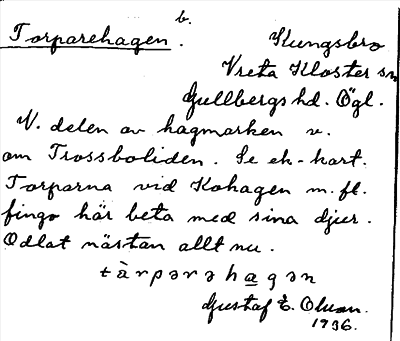 b.
Torparehagen. Kungsbro
Vreta Kloster sn
Gullbergs hd. Ögl.
V. delen av hagmarken v.
om Trossboliden. Se ek-kart.
Torparna vid Kohagen m.fl.
fingo här beta med sina djur.
Odlat nästan allt nu.
tàrpərəhagən
Gustaf E. Olsson.
1936.